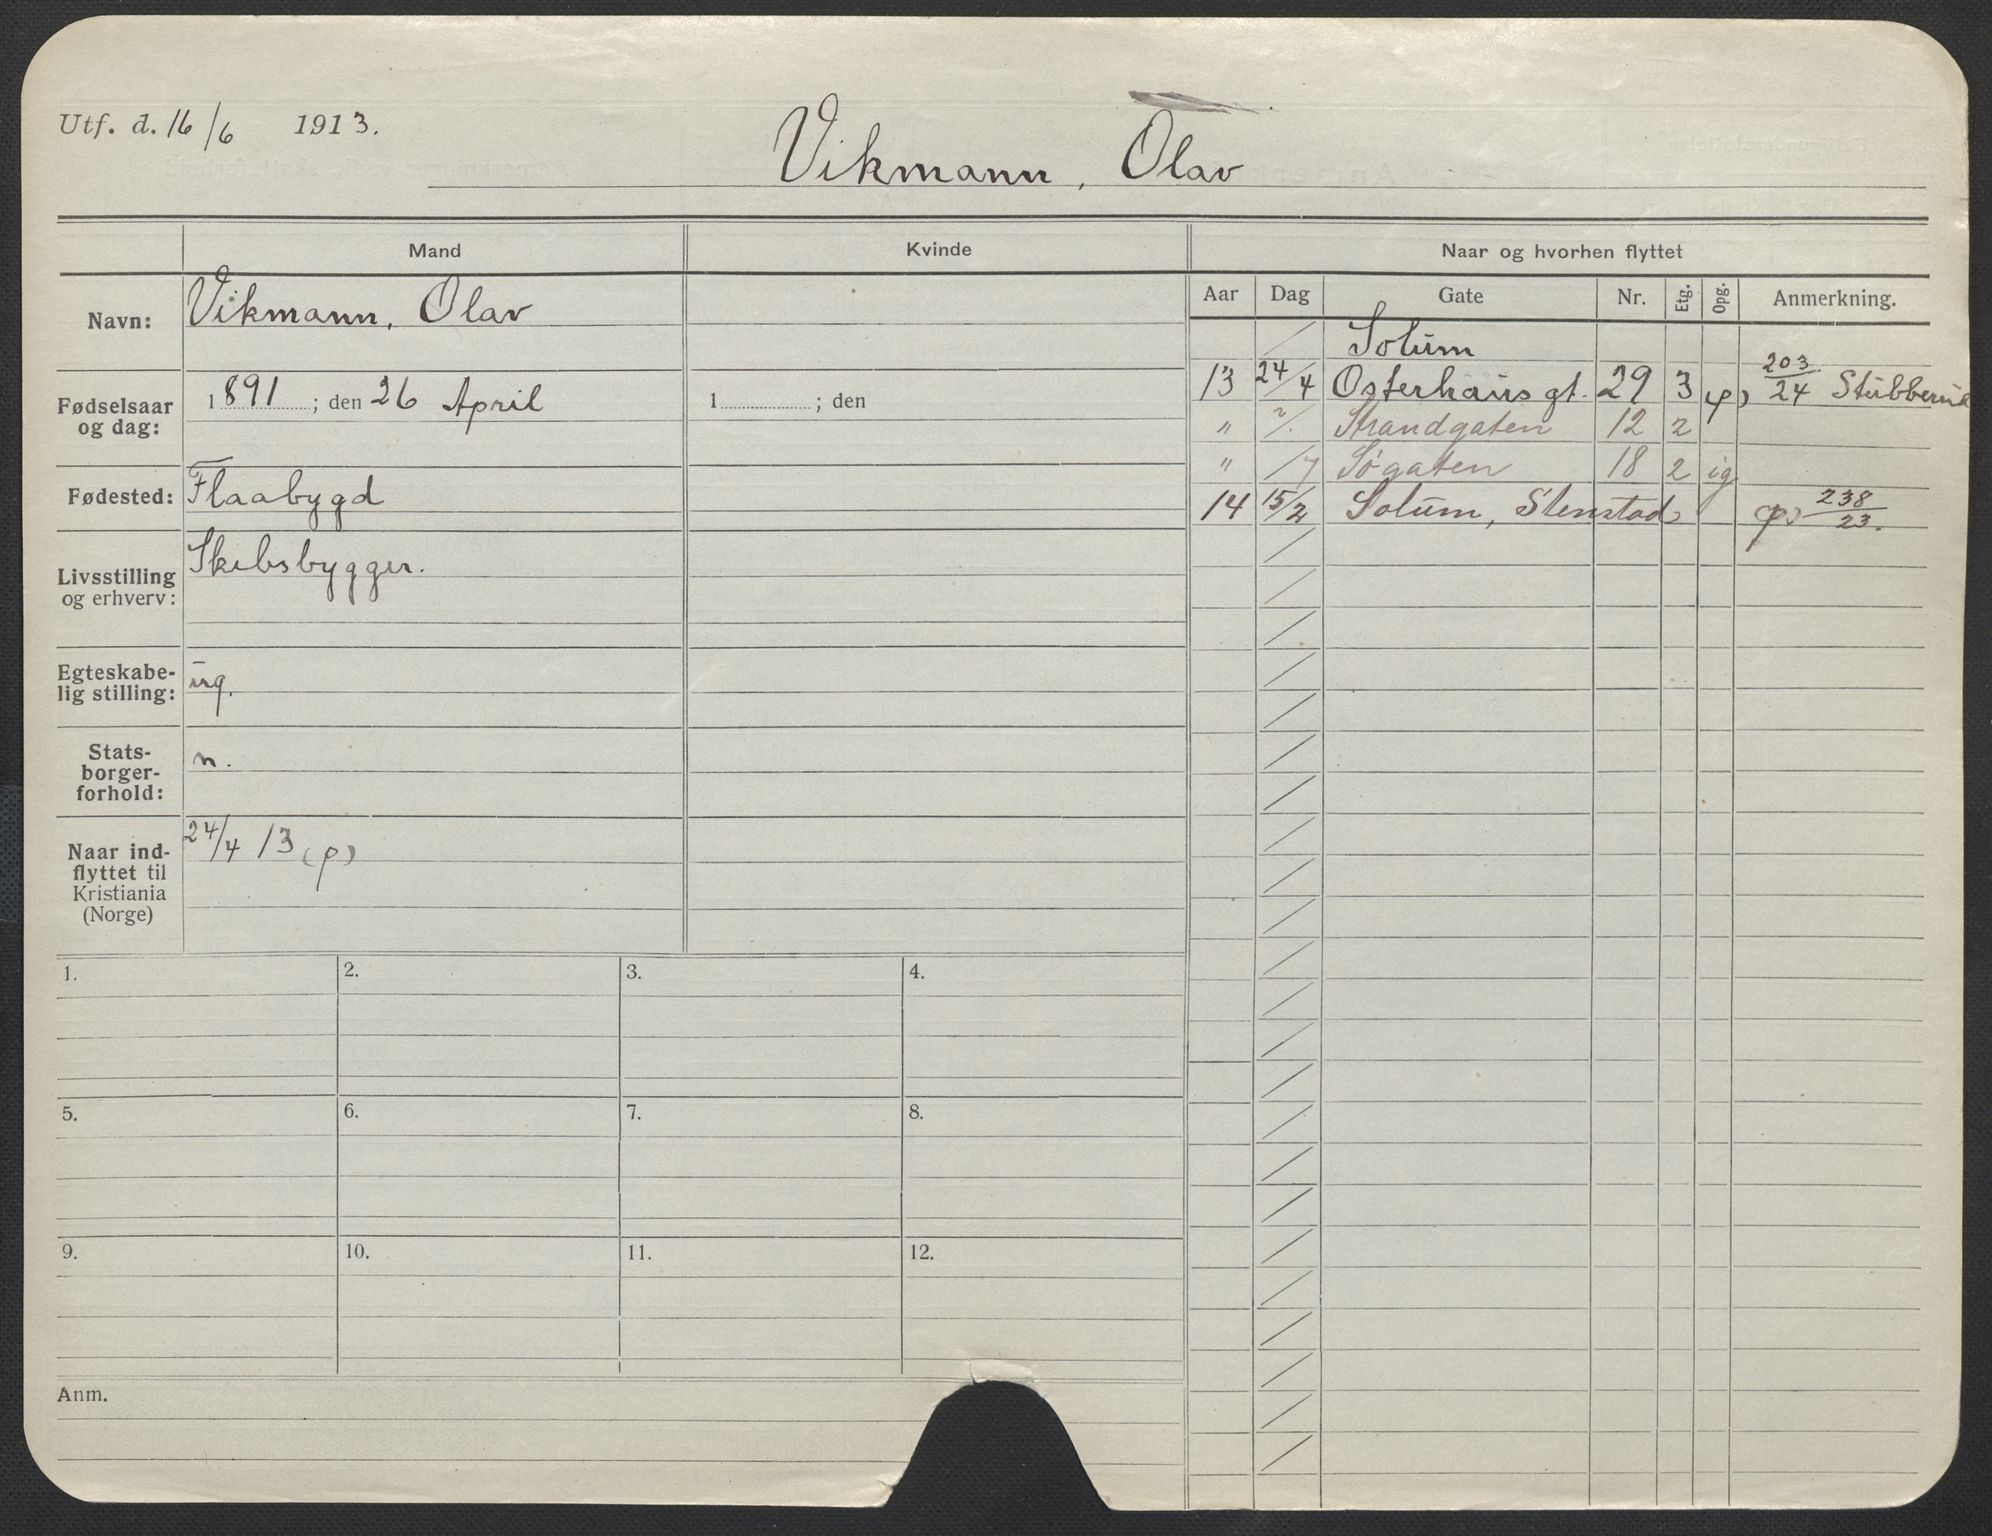 Utf. d. 16/6 1913.
Vikmann, Olav
Mand
Kvinde
Naar og hvorhen flyttet
Navn:
Vikmann, Olav
Aar Dag Gate Nr. Etg. Opg. Anmerkning.
Solum
Fødselsaar og dag:
1891; den 26 April
1 ; den
13 24/4 Osterhausgt. 29 3 (p) 203/24 Stubberud
" ?/. Strandgaten 12 2
" /7 Søgaten 18 2 ig
14 15/2 Solum, Stenstad (p) 238/23.
Fødested:
Flaabygd
Livsstilling
og erhverv:
Skibsbygger.
Egteskabe-
lig stilling:
ug.
Stats-
borger-
forhold:
n.
Naar ind-
flyttet til
Kristiania
(Norge)
24/4 13 (p)
1. 2. 3. 4.
5. 6. 7. 8.
9. 10. 11. 12.
Anm.